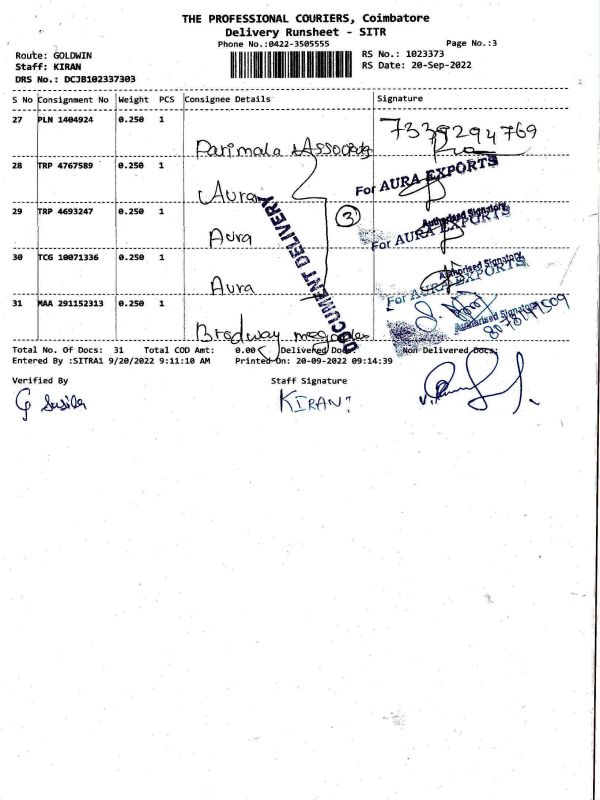 THE PROFESSIONAL COURIERS, Coimbatore
Delivery Runsheet - SITR
Phone No.:0422-3505555
Page No.:3
Route: GOLDWIN
RS No.: 1023373
Staff: KIRAN
RS Date: 20-Sep-2022
DRS No.: DCJB102337303
S No Consignment No Weight PCS Consignee Details Signature
27 PLN 1404924 0.250 1 Parimala & Associates 7339294769
28 TRP 4767589 0.250 1 Aura For AURA EXPORTS
Authorised Signatory
29 TRP 4693247 0.250 1 Aura For AURA EXPORTS
3
Authorised Signatory
30 TCG 10071336 0.250 1 Aura For AURA EXPORTS
Authorised Signatory
31 MAA 291152313 0.250 1 Bradway
DOCUMENT DELIVERY
Total No. Of Docs: 31 Total COD Amt: 0.00 Delivered Docs: Non Delivered Docs:
Entered By :SITRA1 9/20/2022 9:11:10 AM Printed On: 20-09-2022 09:14:39
Verified By Staff Signature
G Susila KIRAN